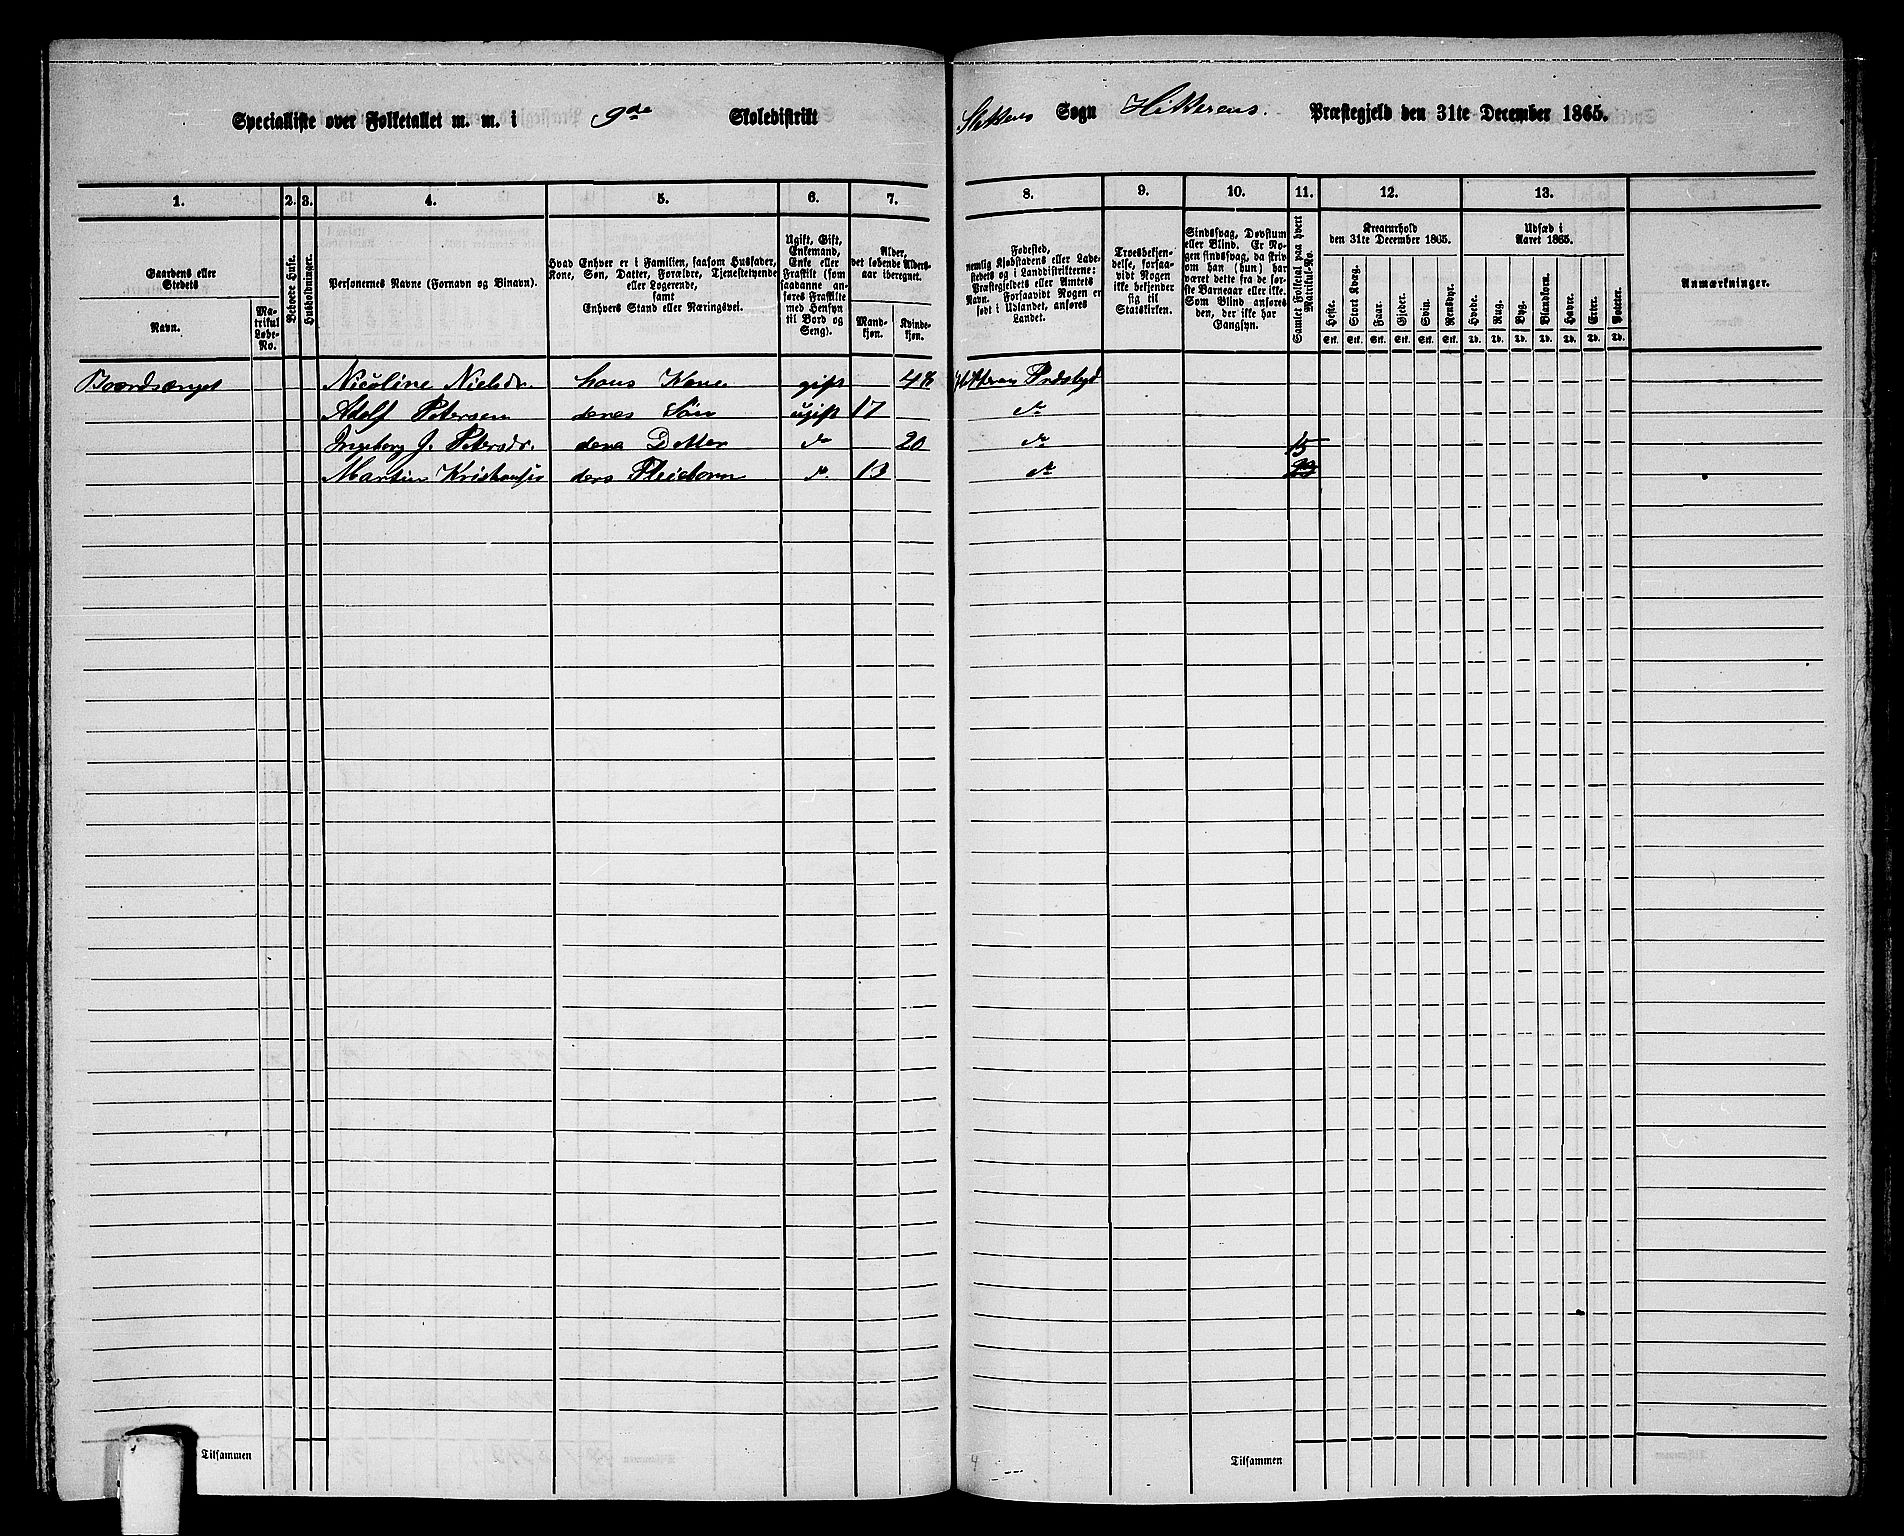 Specialliste over Folketallet m. m. i 9de Skoledistrikt Sogn Hitterens Præstegjeld den 31te December 1865.
1. 2. 3. 4. 5. 6. 7. 8. 9. 10. 11. 12. 13.
Gaardens eller Stedets
Navn.
Matrikul Løbe-No.
Beboede Huse.
Husholdninger.
Personernes Navne (Fornavn og Binavn).
Hvad Enhver er i Familien, saasom Husfader, Kone, Søn, Datter, Forældre, Tjenestetyende eller Logerende, samt Enhvers Stand eller Næringsvei.
Ugift, Gift, Enkemand, Enke eller Fraskilt (som saadanne anføres Fraskilte med Hensyn til Bord og Seng).
Alder, det løbende Aldersaar iberegnet.
Mandkjøn.
Kvindekjøn.
Fødested, nemlig Kjøbstadens eller Ladestedets og i Landdistrikterne: Præstegjeldets eller Amtets Navn. Forsaavidt Nogen er født i Udlandet, anføres Landet.
Troesbekjendelse, forsaavidt Nogen ikke bekjender sig til Statskirken.
Sindssvag, Døvstum eller Blind. Er Nogen sindssvag, da skrives om han (hun) har været dette fra de første Barneaar eller ikke. Som Blind anføres den, der ikke har Gangsyn.
Samlet Folketal paa hvert Matrikul-No.
Kreaturhold den 31te December 1865.
Heste. Stort Kvæg. Faar. Gjeder. Svin. Rensdyr.
Stk. Stk. Stk. Stk. Stk. Stk.
Udsæd i Aaret 1865.
Hvede. Rug. Byg. Blandkorn. Havre. Erter. Poteter.
Td. Td. Td. Td. Td. Td. Td.
Anmærkninger.
Nicoline Nielsdr. hans Kone gift
Adolf Petersen deres Søn ugift 17 do
Ingeborg J. Petersdr. deres Datter do 20 do 15
Martin deres Pleiebarn do 13 do
Tilsammen Tilsammen